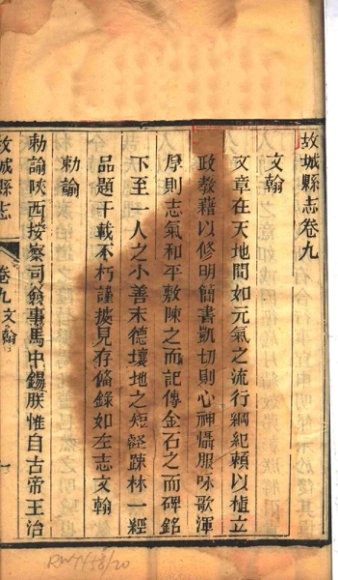 故城縣志卷九
文翰
文章在天地間如元氣之流行綱紀賴以植立
政教藉以修明簡書凱切則心神懾服咏歌渾
厚則志氣和平敷陳之而記傳金石之而碑銘
下至一人之小善末德壤地之短疎林一經
品題千載不朽謹摭見存備錄如左志文翰
勅諭
勅諭陜西按察司僉事馬中錫朕惟自古帝王治
故城縣志
卷九 文翰
一